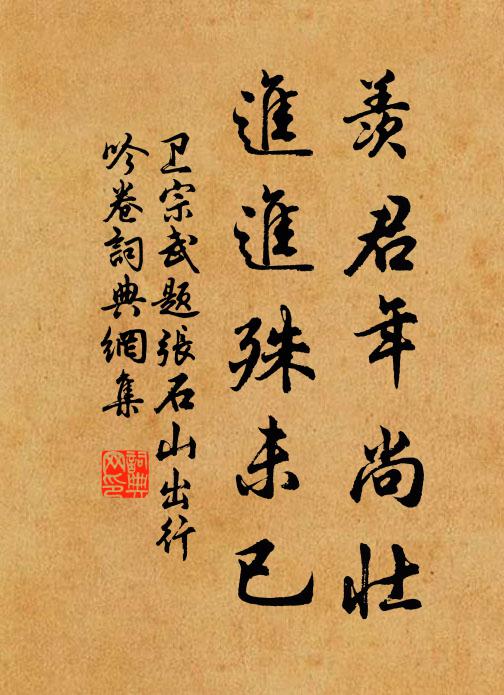 羨君年尚壯
進進殊未已
卫宗武题張石山出行
吟卷詞典網集
詞典网印